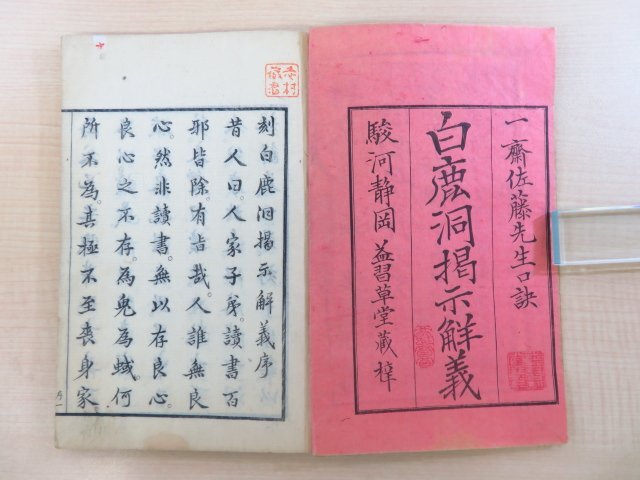 一齋佐藤先生口訣
白鹿洞掲示解義
駿河静岡 益習草堂藏梓
刻白鹿洞掲示解義序
昔人曰。人家子弟。讀書百
邪皆除有旨哉。人誰無良
心。然非讀書。無以存良心。
良心之不存。為鬼為蜮何
所不為。其極不至喪身家